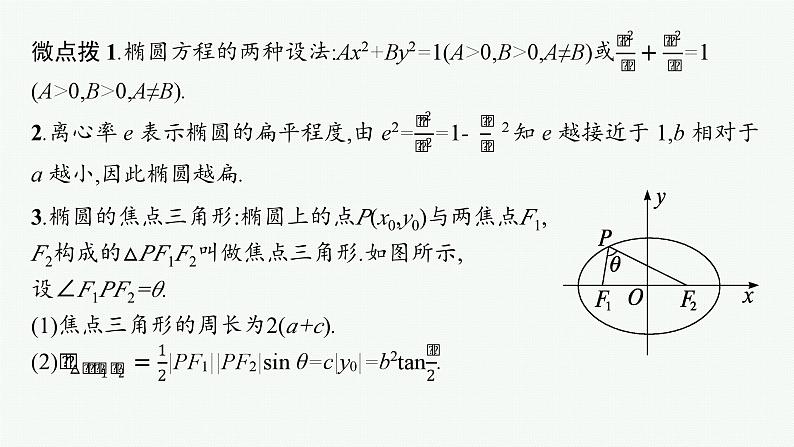 微点拨1.椭圆方程的两种设法:Ax²+By²=1(A>0,B>0,A≠B)或 + =1
(A>0,B>0,A≠B).
2.离心率 e 表示椭圆的扁平程度,由 e²= =1- ² 知 e 越接近于 1,b 相对于
a 越小,因此椭圆越扁.
3.椭圆的焦点三角形:椭圆上的点P(x₀,y₀)与两焦点F₁,
F₂构成的△PF₁F₂叫做焦点三角形.如图所示,
设∠F₁PF₂=θ.
(1)焦点三角形的周长为2(a+c).
(2) =1/2|PF₁||PF₂|sin θ=c|y₀|=b²tan /2.
y
P
θ
F₁ O F₂ x